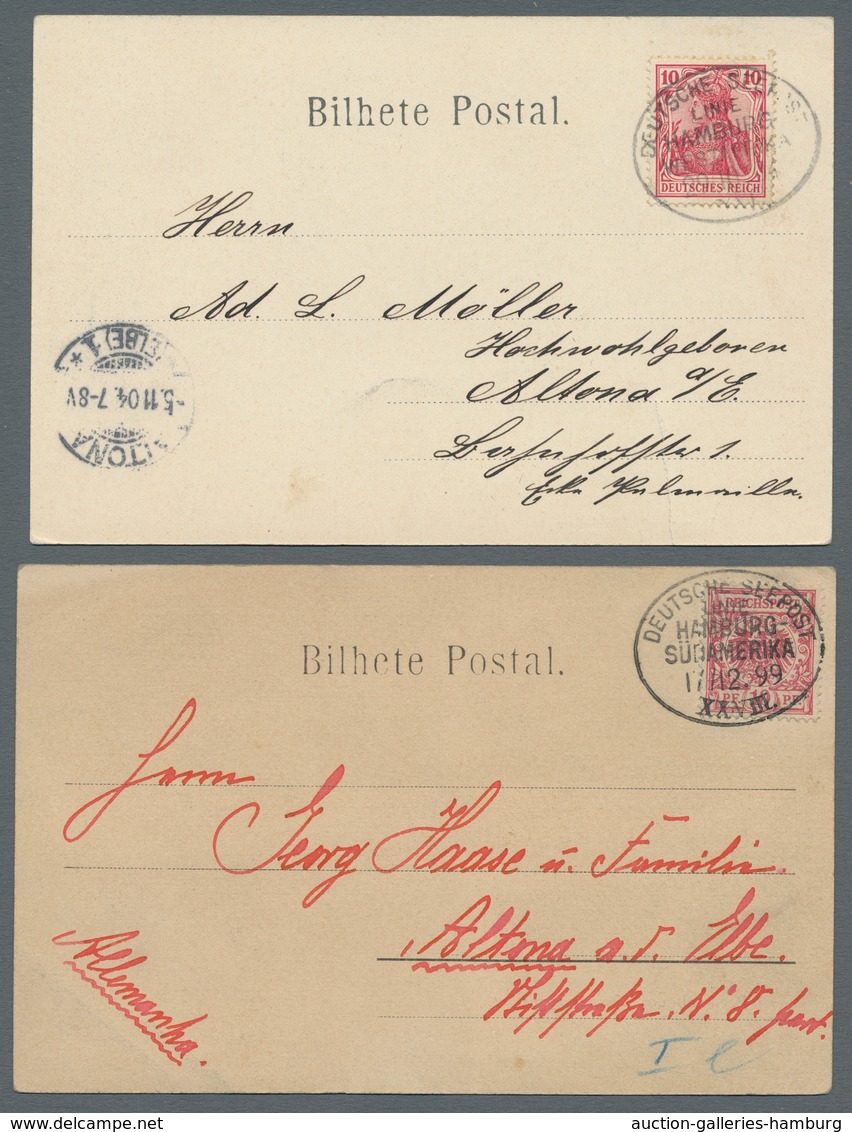 Bilhete Postal.
10 10
DEUTSCHES REICH
DEUTSCHE SEEPOST
LINIE
HAMBURG
Herrn
Ad. L. Möller
Hochwohlgeboren
Altona a/E.
Bahnhofstr 1.
Ecke Palmaille.
ALTONA (ELBE) 1 *
-5.11.04. 7-8V
Bilhete Postal.
DEUTSCHE SEEPOST
LINIE
HAMBURG-
SÜDAMERIKA
17/12.99
XXVIII.
REICHSPOST
PF 10 PF
Herrn
Georg Haase u. Familie.
Altona a.d. Elbe.
Stiftstraße N. 8. part.
Allemanha.
I
auction-galleries-hamburg